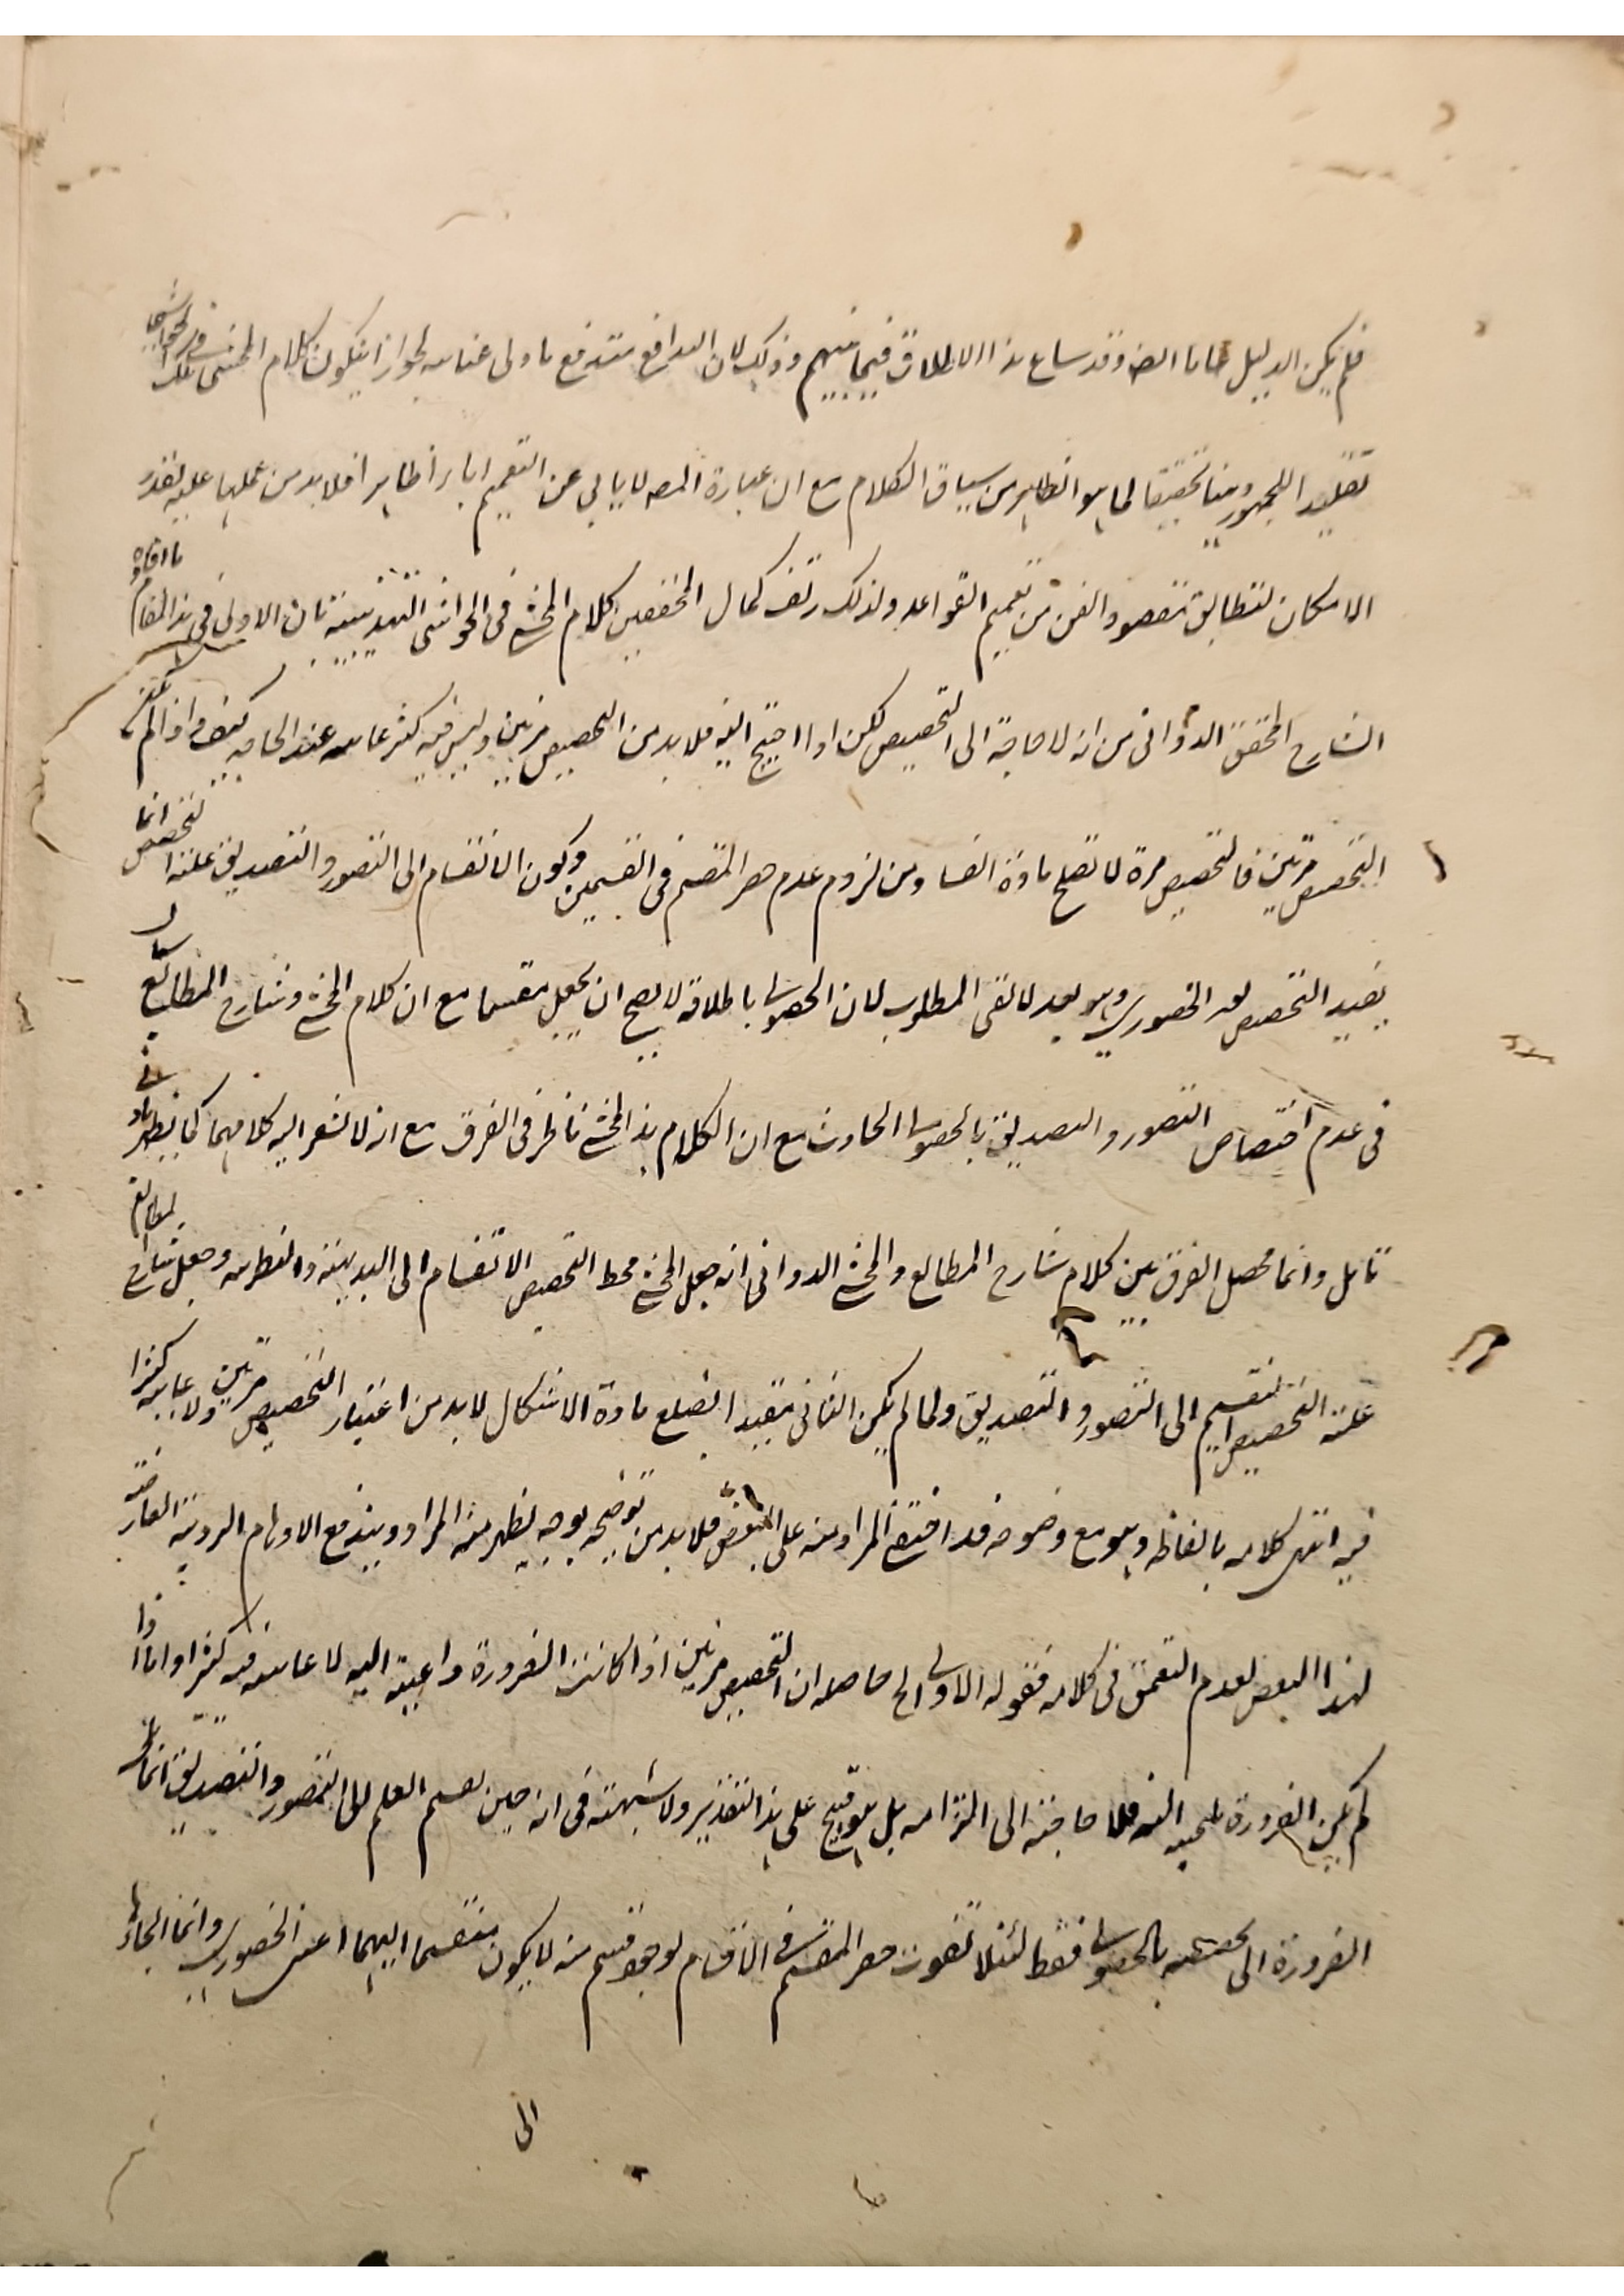 فلم يكن الدليل عاما ايضا وقد ساغ هذا الاطلاق فيما بينهم وذلك لان الدافع مندفع بادنى عناية لجواز ان يكون كلام المحشى فى تلك الحواشى
تقليدا للجمهور وهنا تحقيقا لما هو الظاهر من سياق الكلام مع ان عبارة المصـ لا يابى عن التعميم اباء ظاهرا فلا بد من حملها عليه بقدر
الامكان لتطابق مقصود الفن من تعميم القواعد ولذلك زيف كمال المحققين كلام المحشى فى الحواشى التهذيبية بان الاولى فى هذا المقام ما افاده
الشارح المحقق الدوانى من انه لا حاجة الى التخصيص لكن اذا احتيج اليه فلا بد من التخصيص مرتين وليس فيه كثير عناية عند الحاجة كيف واذا لم
التخصيص مرتين فالتخصيص مرة لا تقلع مادة الفساد من لزوم عدم حصر المقسم فى القسمين وكون الانقسام الى التصور والتصديق علة التخصيص انما
يفيد التخصيص بغير الحضورى وهو بعد لا يفى المطلوب لان الحصولى باطلاقه لا يصح ان يجعل مقسما مع ان كلام المحشى وشارح المطالع
فى عدم اختصاص التصور والتصديق بالحصولى الحادث مع ان الكلام هذا المحشى ناظر فى الفرق مع انه لا يشعر اليه كلامهما كما يظهر
تامل وانما محصل الفرق بين كلام شارح المطالع والمحشى الدوانى انه جعل المحشى محط التخصيص الانقسام الى البديهية والنظرية وجعل شارح المطالع
علة التخصيص التقسيم الى التصور والتصديق ولما لم يكن الثانى مفيدا لقلع مادة الاشكال لا بد من اعتبار التخصيص مرتين ولا عناية كثيرا
فيه انتهى كلامه بالفاظه وهو مع وضوحه قد اختفى المراد منه على البعض فلا بد من توضيحه بوجه يظهر منه المراد ويندفع الاوهام الردية العارضة
لهذا البعض لعدم التعمق فى كلامه فقوله الاولى الخ حاصله ان التخصيص مرتين اذا كانت الضرورة داعية اليه لا عناية فيه كثيرا واما اذا
لم يكن الضرورة ملجئة اليه فلا حاجة الى التزامه بل هو قبيح على هذا التقدير ولا شبهة فى انه حين تقسيم العلم الى التصور والتصديق انما
الضرورة الى تخصيصه بالحصولى فقط لئلا تفوت حصر المقسم فى الاقسام لوجود قسم منه لا يكون منقسما اليهما اعنى الحضورى وانما الجاء
الى